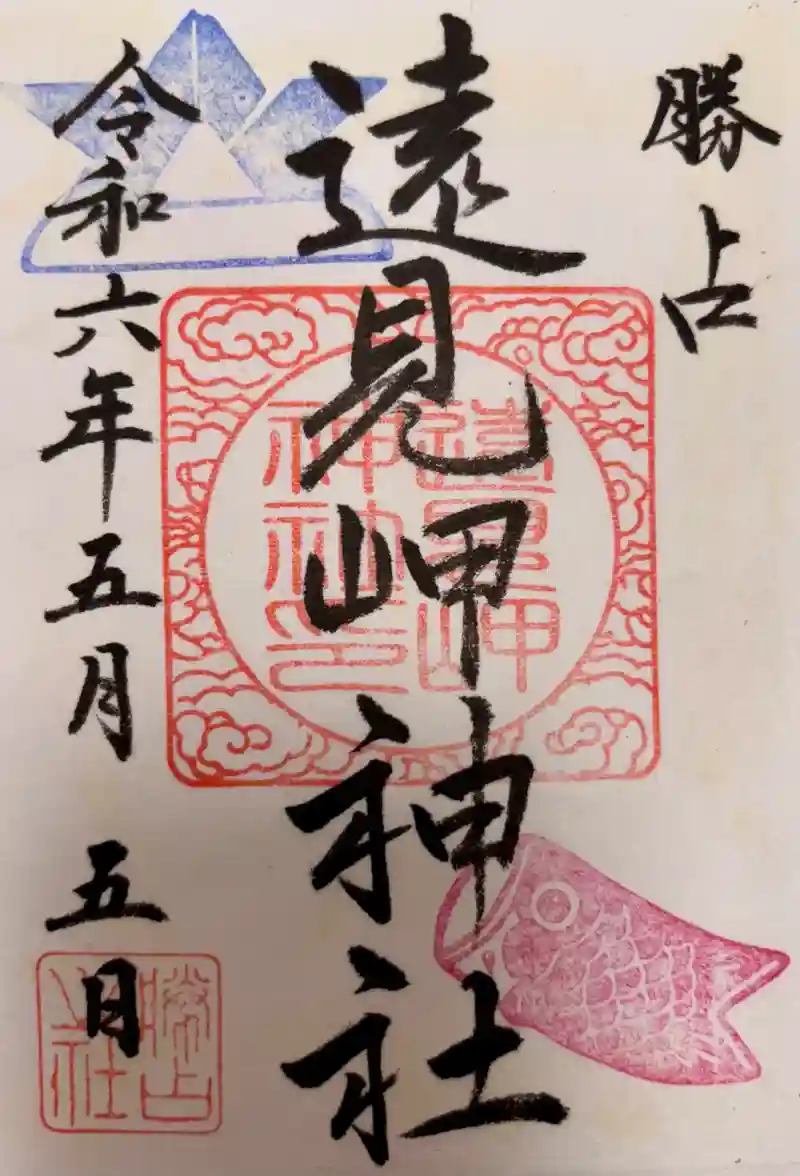 勝占
遠見岬神社
遠見岬
神社印
令和六年五月五日
勝占
之社